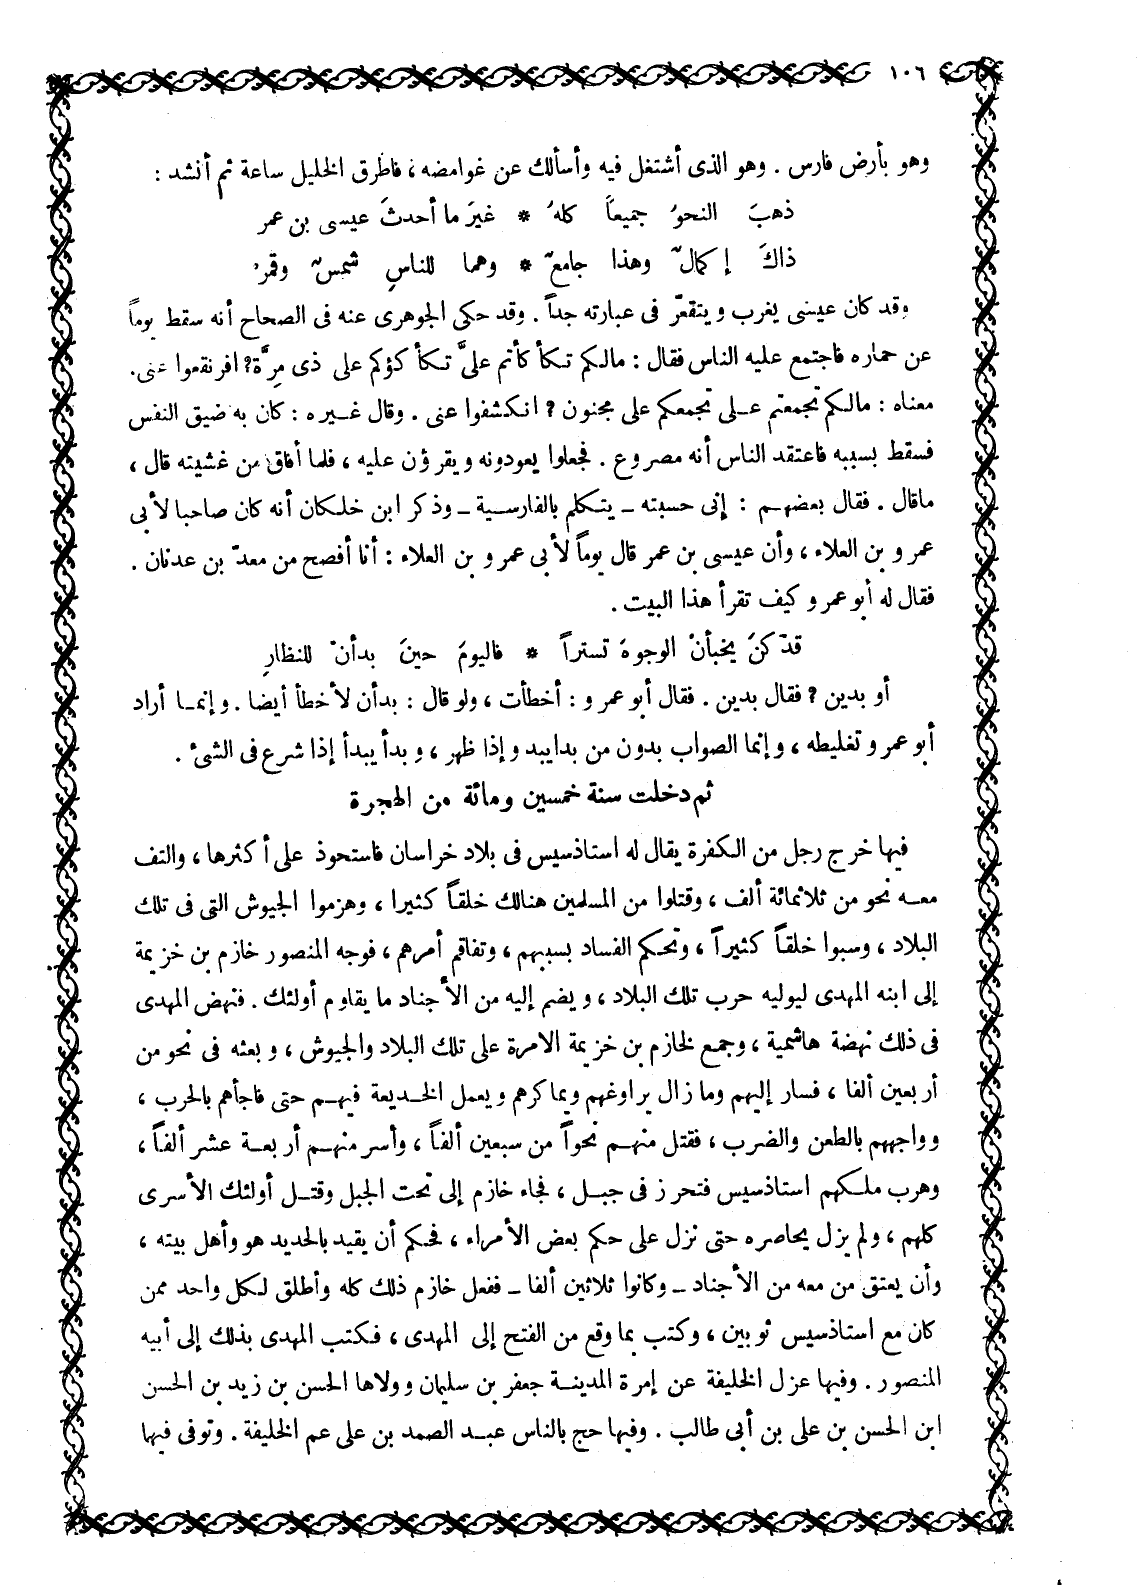 ١٠٦
وهو بأرض فارس . وهو الذى أشتغل فيه وأسألك عن غوامضه ، فاطرق الخليل ساعة ثم أنشد :
ذهبَ النحوُ جميعاً كلهُ * غيرَ ما أحدثَ عيسى بن عمر
ذاكَ إكمالٌ وهذا جامعٌ * وهما للناسِ شمسٌ وقمرُ
وقد كان عيسى يغرب ويتقعرّ فى عبارته جداً . وقد حكى الجوهرى عنه فى الصحاح أنه سقط يوماً
عن حماره فاجتمع عليه الناس فقال : مالكم تكأ كأتم علىَّ تكأ كؤكم على ذى مِرَّة؟ افرنقعوا عنى.
معناه : مالكم تجمعتم على تجمعكم على مجنون ? انكشفوا عنى . وقال غيره : كان به ضيق النفس
فسقط بسببه فاعتقد الناس أنه مصروع . فجعلوا يعودونه ويقرؤن عليه ، فلما أفاق من غشيته قال ،
ماقال . فقال بعضهم : إنى حسبته ـ يتكلم بالفارسية ـ وذكر ابن خلكان أنه كان صاحبا لأبى
عمرو بن العلاء ، وأن عيسى بن عمر قال يوماً لأبى عمرو بن العلاء : أنا أفصح من معدّ بن عدنان .
فقال له أبو عمرو كيف تقرأ هذا البيت .
قدْ كنَ يخبأنْ الوجوهَ تستراً * فاليومَ حينَ بدأنْ للنظارِ
أو بدين ? فقال بدين . فقال أبو عمرو : أخطأت ، ولو قال : بدأن لأخطأ أيضا . وإنما أراد
أبو عمرو تغليطه ، وإنما الصواب بدون من بدا يبدو إذا ظهر ، وبدأ يبدأ إذا شرع فى الشئ .
ثم دخلت سنة خمسين ومائة من الهجرة
فيها خرج رجل من الكفرة يقال له استاذسيس فى بلاد خراسان فاستحوذ على أكثرها ، والتف
معه نحو من ثلاثمائة ألف ، وقتلوا من المسلمين هنالك خلقاً كثيرا ، وهزموا الجيوش التى فى تلك
البلاد ، وسبوا خلقاً كثيراً ، وتحكم الفساد بسببهم ، وتفاقم أمرهم ، فوجه المنصور خازم بن خزيمة
إلى ابنه المهدى ليوليه حرب تلك البلاد ، ويضم إليه من الأجناد ما يقاوم أولئك . فنهض المهدى
فى ذلك نهضة هاشمية ، وجمع لخازم بن خزيمة الامرة على تلك البلاد والجيوش ، وبعثه فى نحو من
أربعين ألفا ، فسار إليهم وما زال يراوغهم ويماكرهم ويعمل الخديعة فيهم حتى فاجأهم بالحرب ،
وواجههم بالطعن والضرب ، فقتل منهم نحواً من سبعين ألفاً ، وأسر منهم أربعة عشر ألفاً ،
وهرب ملكهم استاذسيس فتحرز فى جبل ، فجاء خازم إلى تحت الجبل وقتل أولئك الأسرى
كلهم ، ولم يزل يحاصره حتى نزل على حكم بعض الأمراء ، فحكم أن يقيد بالحديد هو وأهل بيته ،
وأن يعتق من معه من الأجناد ـ وكانوا ثلاثين ألفا ـ ففعل خازم ذلك كله وأطلق لكل واحد ممن
كان مع استاذسيس ثوبين ، وكتب بما وقع من الفتح إلى المهدى ، فكتب المهدى بذلك إلى أبيه
المنصور . وفيها عزل الخليفة عن إمرة المدينة جعفر بن سليمان وولاها الحسن بن زيد بن الحسن
ابن الحسن بن على بن أبى طالب . وفيها حج بالناس عبد الصمد بن على عم الخليفة . وتوفى فيها